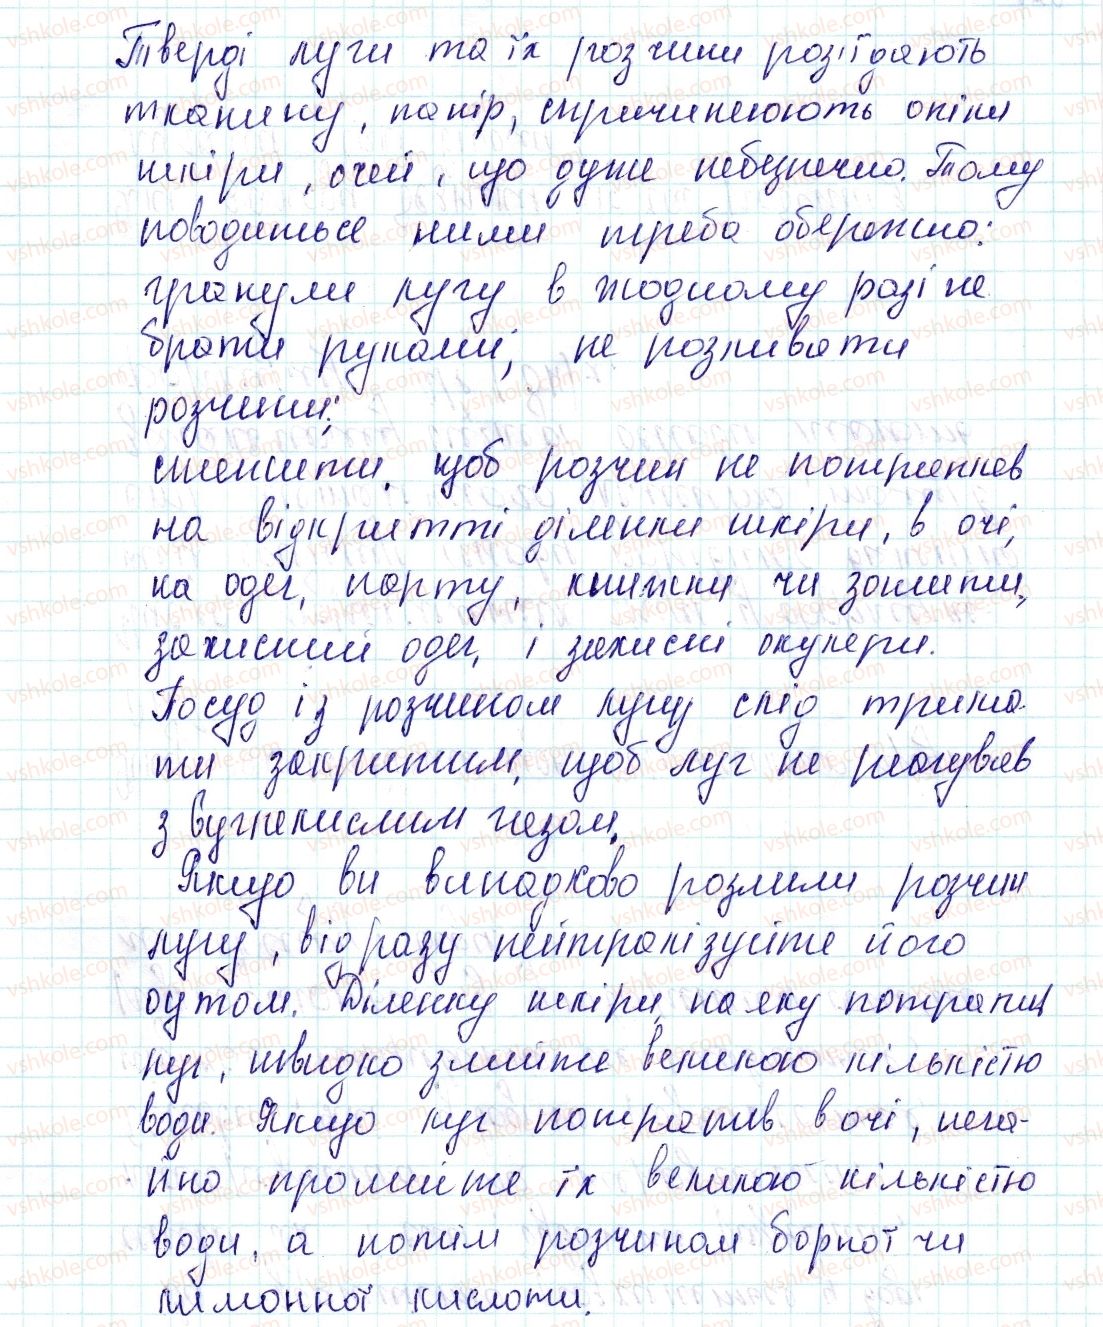 Тверді луги та їх розчини роз'їдають
тканину, папір, спричинюють опіки
шкіри, очей, що дуже небезпечно. Тому
поводиться ними треба обережно:
гранули лугу в жодному разі не
брати руками, не розливати
розчини;
стежити, щоб розчин не потрапляв
на відкритті ділянки шкіри, в очі,
на одяг, парту, книжки чи зошити,
захисний одяг, і захисні окуляри.
Посуд із розчином лугу слід трима-
ти закритим, щоб луг не реагував
з вуглекислим газом.
Якщо ви випадково розлили розчин
лугу, відразу нейтралізуйте його
оцтом. Ділянку шкіри, на яку потрапив
луг, швидко змийте великою кількістю
води. Якщо луг потрапив в очі, нега-
йно промийте їх великою кількістю
води, а потім розчином борної чи
лимонної кислоти.